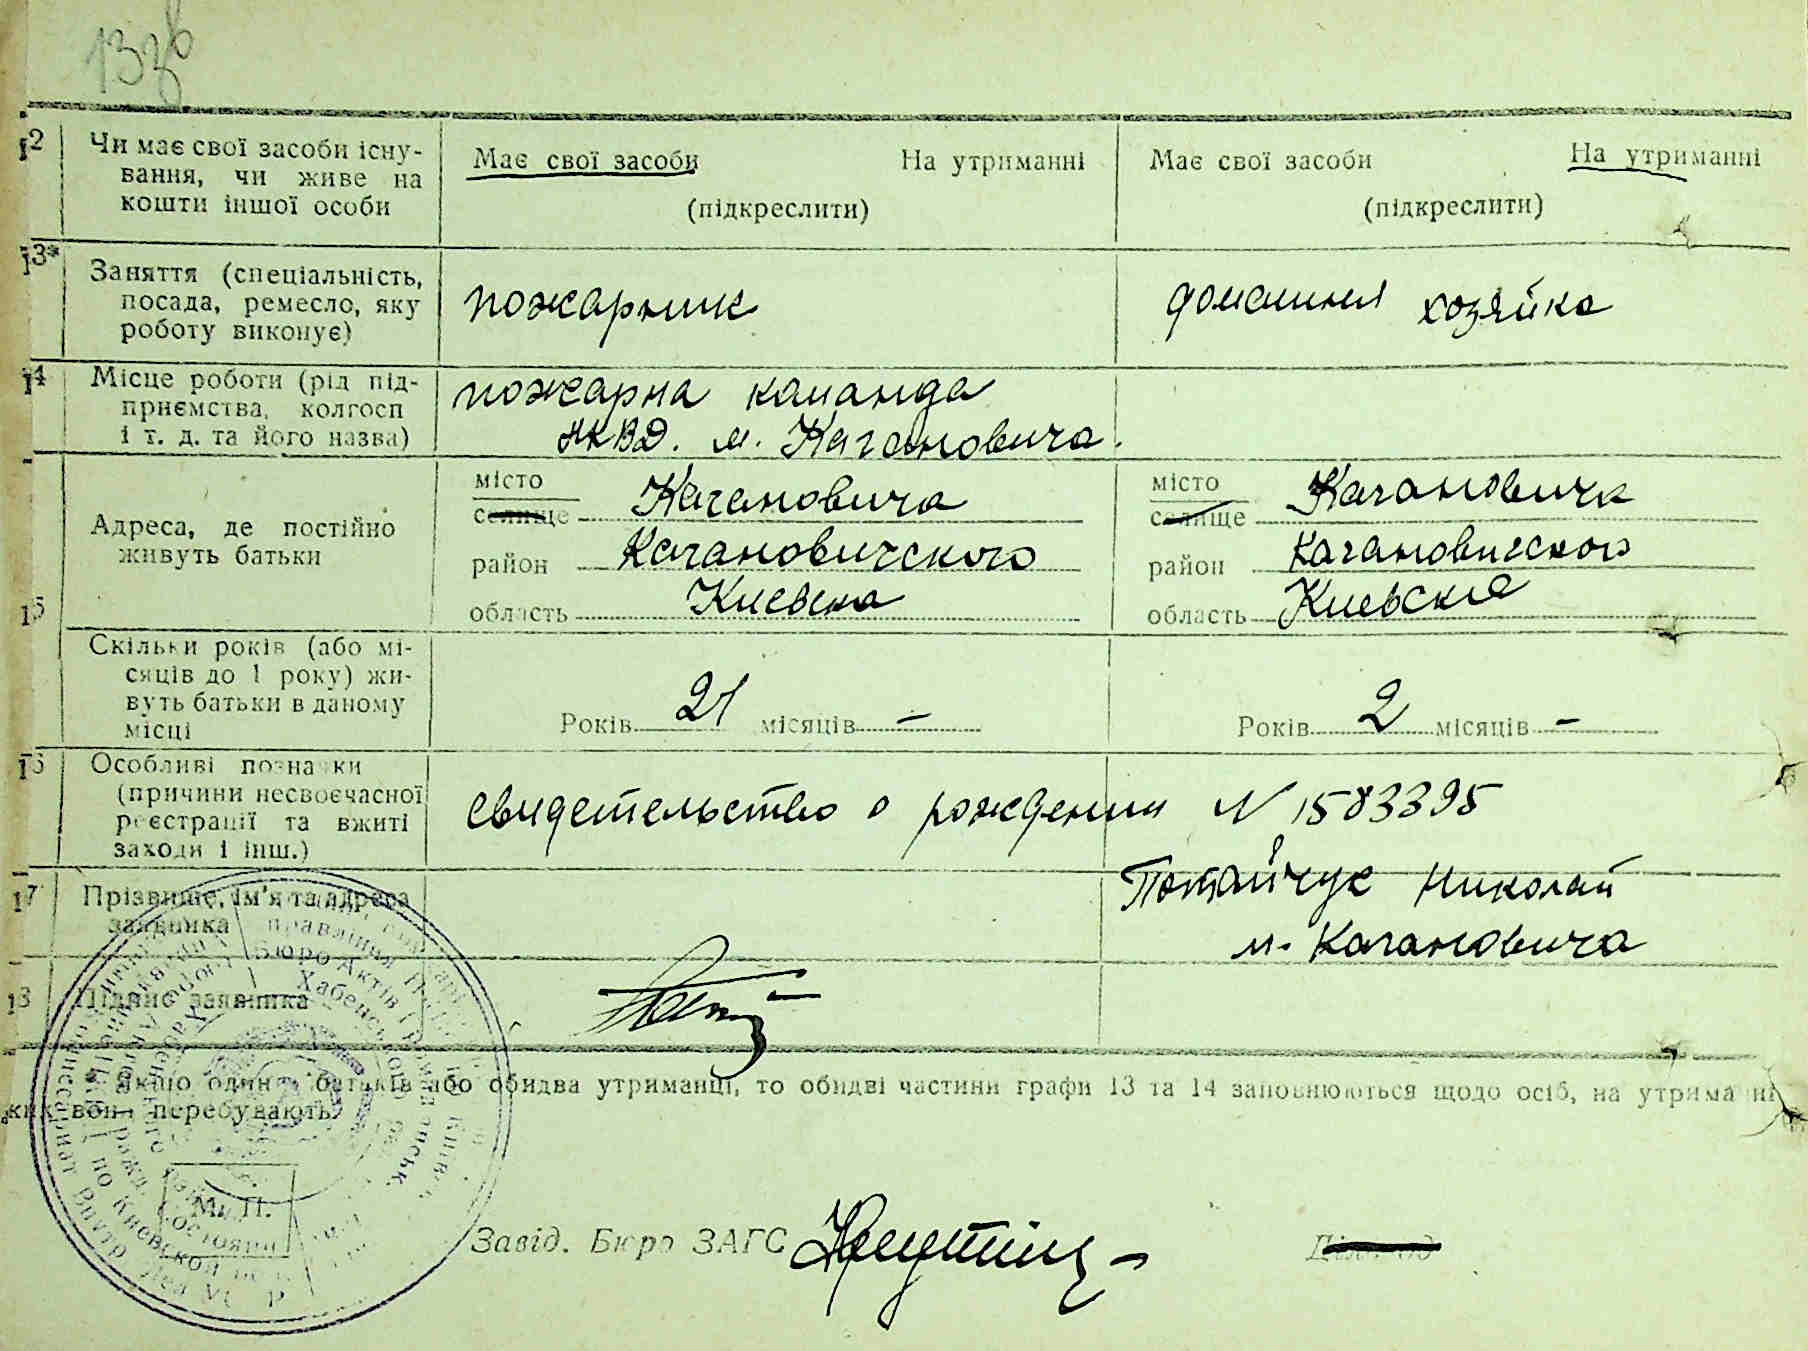 12 Чи має свої засоби існу-
вання, чи живе на
кошти іншої особи
Має свої засоби На утриманні
(підкреслити)
Має свої засоби На утриманні
(підкреслити)
13* Заняття (спеціальність,
посада, ремесло, яку
роботу виконує)
пожарник
домашняя хозяйка
14 Місце роботи (рід під-
приємства, колгосп
і т. д. та його назва)
пожарна команда
НКВД. м. Кагановича.
15 Адреса, де постійно
живуть батьки
місто
селище Кагановича
район Кагановичского
область Киевска
місто
селище Кагановича
район Кагановичского
область Киевская
Скільки років (або мі-
сяців до 1 року) жи-
вуть батьки в даному
місці
Років 21 місяців –
Років 2 місяців –
16 Особливі позначки
(причини несвоєчасної
реєстрації та вжиті
заходи і інш.)
свидетельство о рождении N 1583395
17 Прізвище, ім'я та адреса
заявника
Николай
м. Кагановича
18 Підпис заявника
* Якщо один з батьків або обидва утриманці, то обидві частини графи 13 та 14 заповнюються щодо осіб, на утриманні
яких вони перебувають.
М. П.
Завід. Бюро ЗАГС